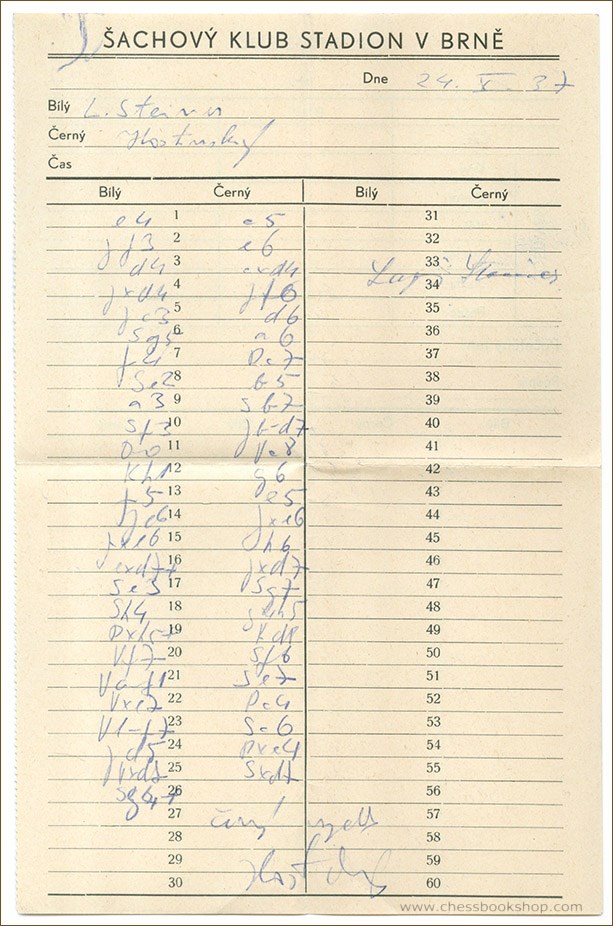 ŠACHOVÝ KLUB STADION V BRNĚ
Dne 24. V. 37
Bílý L. Steiner
Černý
Čas
Bílý Černý Bílý Černý
e4 1 c5 31
Jf3 2 e6 32
d4 3 cxd4 33
Jxd4 4 Jf6 34
Jc3 5 d6 35
Sg5 6 a6 36
f4 7 Dc7 37
Se2 8 b5 38
a3 9 Sb7 39
Sf3 10 Jb-d7 40
0-0 11 Vc8 41
Kh1 12 g6 42
f5 13 e5 43
Je6 14 fxe6 44
fxe6 15 h6 45
exd7+ 16 Jxd7 46
Se3 17 Sg7 47
Sh4 18 gxh5 48
Dxh5+ 19 Kd8 49
Vf7 20 Sf6 50
Va-f1 21 Se7 51
Vxe7 22 Dc4 52
V1-f7 23 Sc6 53
Jd5 24 Dxe4 54
Vxd7 25 Sxd7 55
Sb6+ 26 56
27 černý 57
28 58
29 59
30 60
www.chessbookshop.com